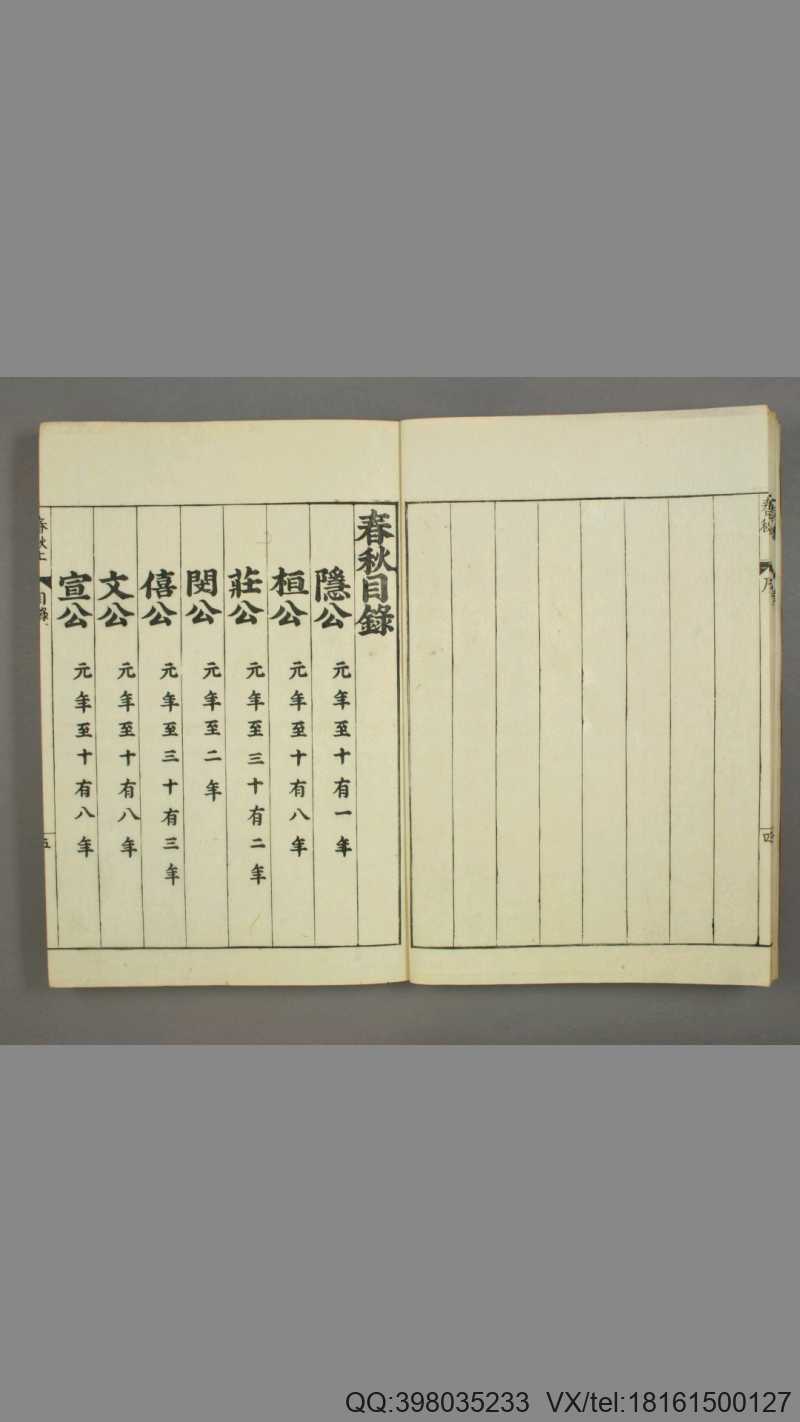 春秋
序
四
春秋目錄
隱公 元年至十有一年
桓公 元年至十有八年
莊公 元年至三十有二年
閔公 元年至二年
僖公 元年至三十有三年
文公 元年至十有八年
宣公 元年至十有八年
春秋上
目錄
五
QQ:398035233 VX/tel:18161500127